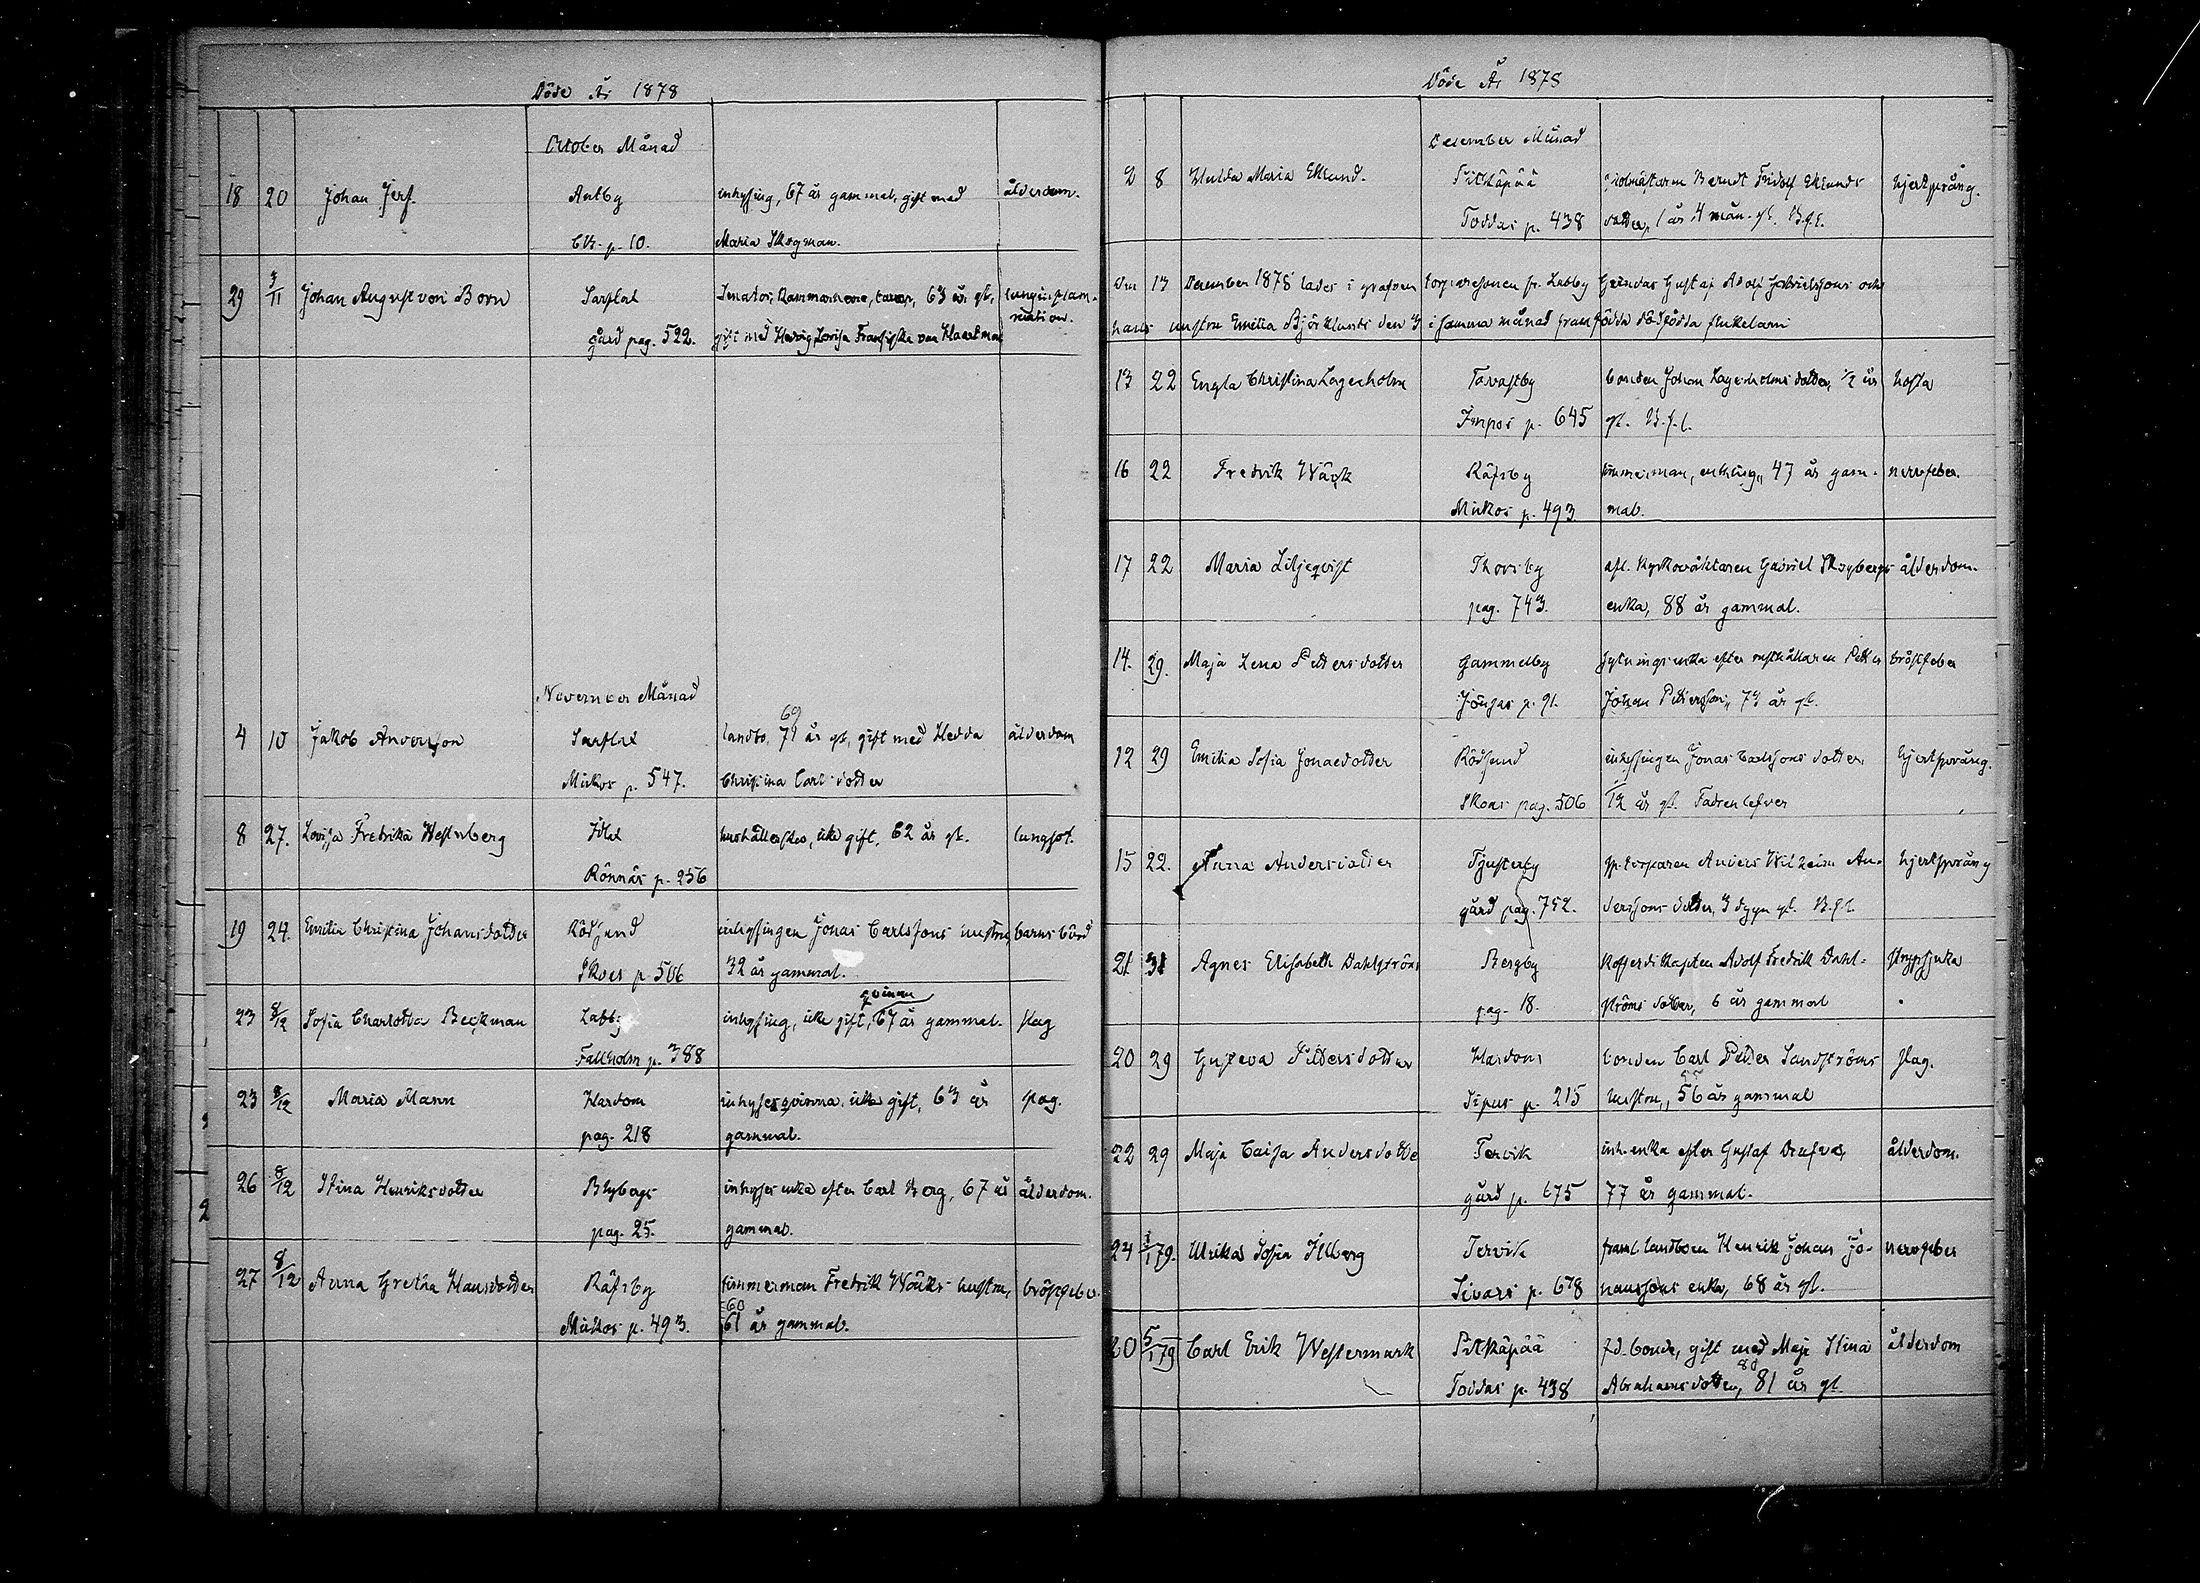 Döde År 1878
Oktober Månad
18 20 Johan Jerf. Antby inhysing, 67 år gammal, gift med ålderdom.
p. 10. Maria Skogman.
29 3/11 Johan August von Born Sarflax Senator, Kammarherre, 63 år gl, lunginflam-
mation.
gård pag. 522. gift med Hedvig Lovisa Fransiska von Haartman
November Månad
69
4 10 Jakob Andersson Sarflax landbo, 71 år gl, gift med Hedda ålderdom
Mickos p. 547. Christina Carlsdotter
8 27. Lovisa Fredrika Westerberg Isle hushållerska, icke gift, 62 år gl. lungsot.
Rönnäs p. 256
19 24. Emilia Christina Johansdotter Rödsund inhysingen Jonas Carlssons hustru barnsbörd
Skoes p 506 32 år gammal.
qvinna
23 8/12 Sofia Charlotta Beckman Labby inhysing, icke gift, 67 år gammal. slag
Fallholm p. 388
23 8/12 Maria Mann Hardom inhysesqvinna, icke gift, 63 år slag.
pag. 218 gammal.
26 8/12 Stina Henriksdotter Blybergs inhyses enka efter Carl Berg, 67 år ålderdom.
pag. 25. gammal.
27 8/12 Anna Gretha Hansdotter Räfsby timmerman Fredrik Wäcks hustru, bröstfeber.
60
Mickos p. 493. 61 år gammal.
Döde År 1878
December Månad
2 8 Hulda Maria Eklund. Pitkäpää Berndt Fridolf Eklunds hjertsprång.
Toddas p. 438 dotter, 1 år 4 mån. gl. B.f.l.
Den 13 December 1878 lades i grafven torparesonen fr. Labby Grindas Gustaf Adolf Gabrielssons och
hans hustru Emilia Björklunds den 3 i samma månad framfödda dödfödda flickebarn
13 22 Engla Christina Lagerholm Tavastby bonden Johan Lagerholms dotter, 1/2 år hosta
Impos p. 645 gl. B.f.l.
16 22 Fredrik Wäck Räfsby timmerman, enkling, 47 år gam- nervfeber.
Mickos p. 493 mal.
17 22 Maria Liljeqvist Thorsby afl. kyrkovaktaren Gabriel Skogbergs ålderdom.
pag. 743. enka, 88 år gammal.
14. 29. Maja Lena Pettersdotter Gammelby sytningsenka efter rusthållaren Petter bröstfeber
Jönsas p. 91. Johan Pettersson, 73 år gl.
12 29 Emilia Sofia Jonaedotter Rödsund inhysingen Jonas Carlssons dotter, hjertsprång.
Skoes pag. 506 1/12 år gl. Fadren lefver
15 22. Anna Andersdotter Tjusterby sp. torparen Anders Wilhelm An- hjertsprång
gård pag. 752. derssons dotter, 3 dygn gl. B.f.l.
21 31 Agnes Elisabeth Dahlström Bergby Kofferdikapten Adolf Fredrik Dahl- strypsjuka
pag. 18. ströms dotter, 6 år gammal
20 29 Gustava Pettersdotter Hardom bonden Carl Petter Sandströms slag.
55
Sipus p. 215 hustru, 56 år gammal
22 29 Maja Caisa Andersdotter Tervik inh. enka efter Gustaf Drufva, ålderdom.
gård p. 675 77 år gammal.
24 1/1 79. Ulrika Sofia Illberg Tervik framl. landboen Henrik Johan Jo- nervfeber
Sivars p. 678 hanssons enka, 68 år gl.
20 5/1 79 Carl Erik Westermark Pitkäpää fd. bonde, gift med Maja Stina ålderdom
80
Toddas p. 438 Abrahamsdotter, 81 år gl